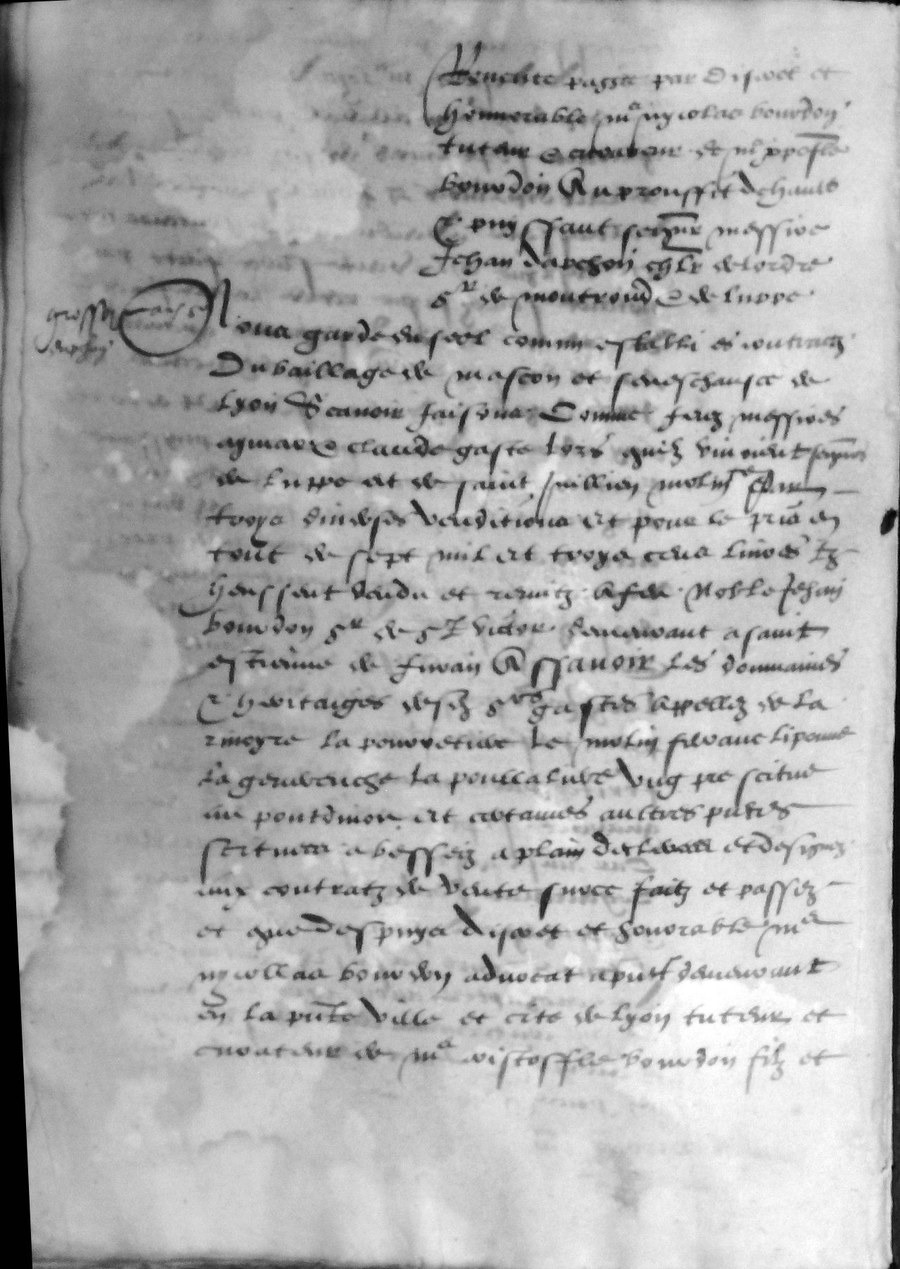 Revehte passee par discret et
honnorable mᵉ nycolas bourdon
tuteur & curateur de mᵉ xpofle
bourdon Au prouffit de hault
& puyssant seigneur messire
Jehan darchon chlr de lordre
sʳ de montrond & de luppe
grosse
Nous garde du seel commun estably es contractz
Du bailliage de mascon et seneschaucee de
lyon Scavoir faisons Comme feuz messires
aymar & claude gaste lors quilz vivoient seigneurs
de luppe et de sainct Jullien molin Par
troys diverses venditions et pour le pris en
tout de sept mil et troys cens livres tz
heussent vendu et remitz A feu Noble Jehan
bourdon sʳ de sᵗ victor demeurant a sainct
estienne de furan Assavoir les dommaines
& heritaiges desdz sʳˢ gastes Appellez de la
rivoyre la pourretiere le molin
la la Ung pre scitue
au et certaines aultres pieces
scituees a bessey a plain declairees et designez
aux contractz de vente surce faitz et passez
et que despuys discret et honorable mᵉ
nycollas bourdon advocat a pnt demeurant
En la pnte Ville et cite de lyon tuteur et
curateur de mᵉ cristoffle bourdon filz et